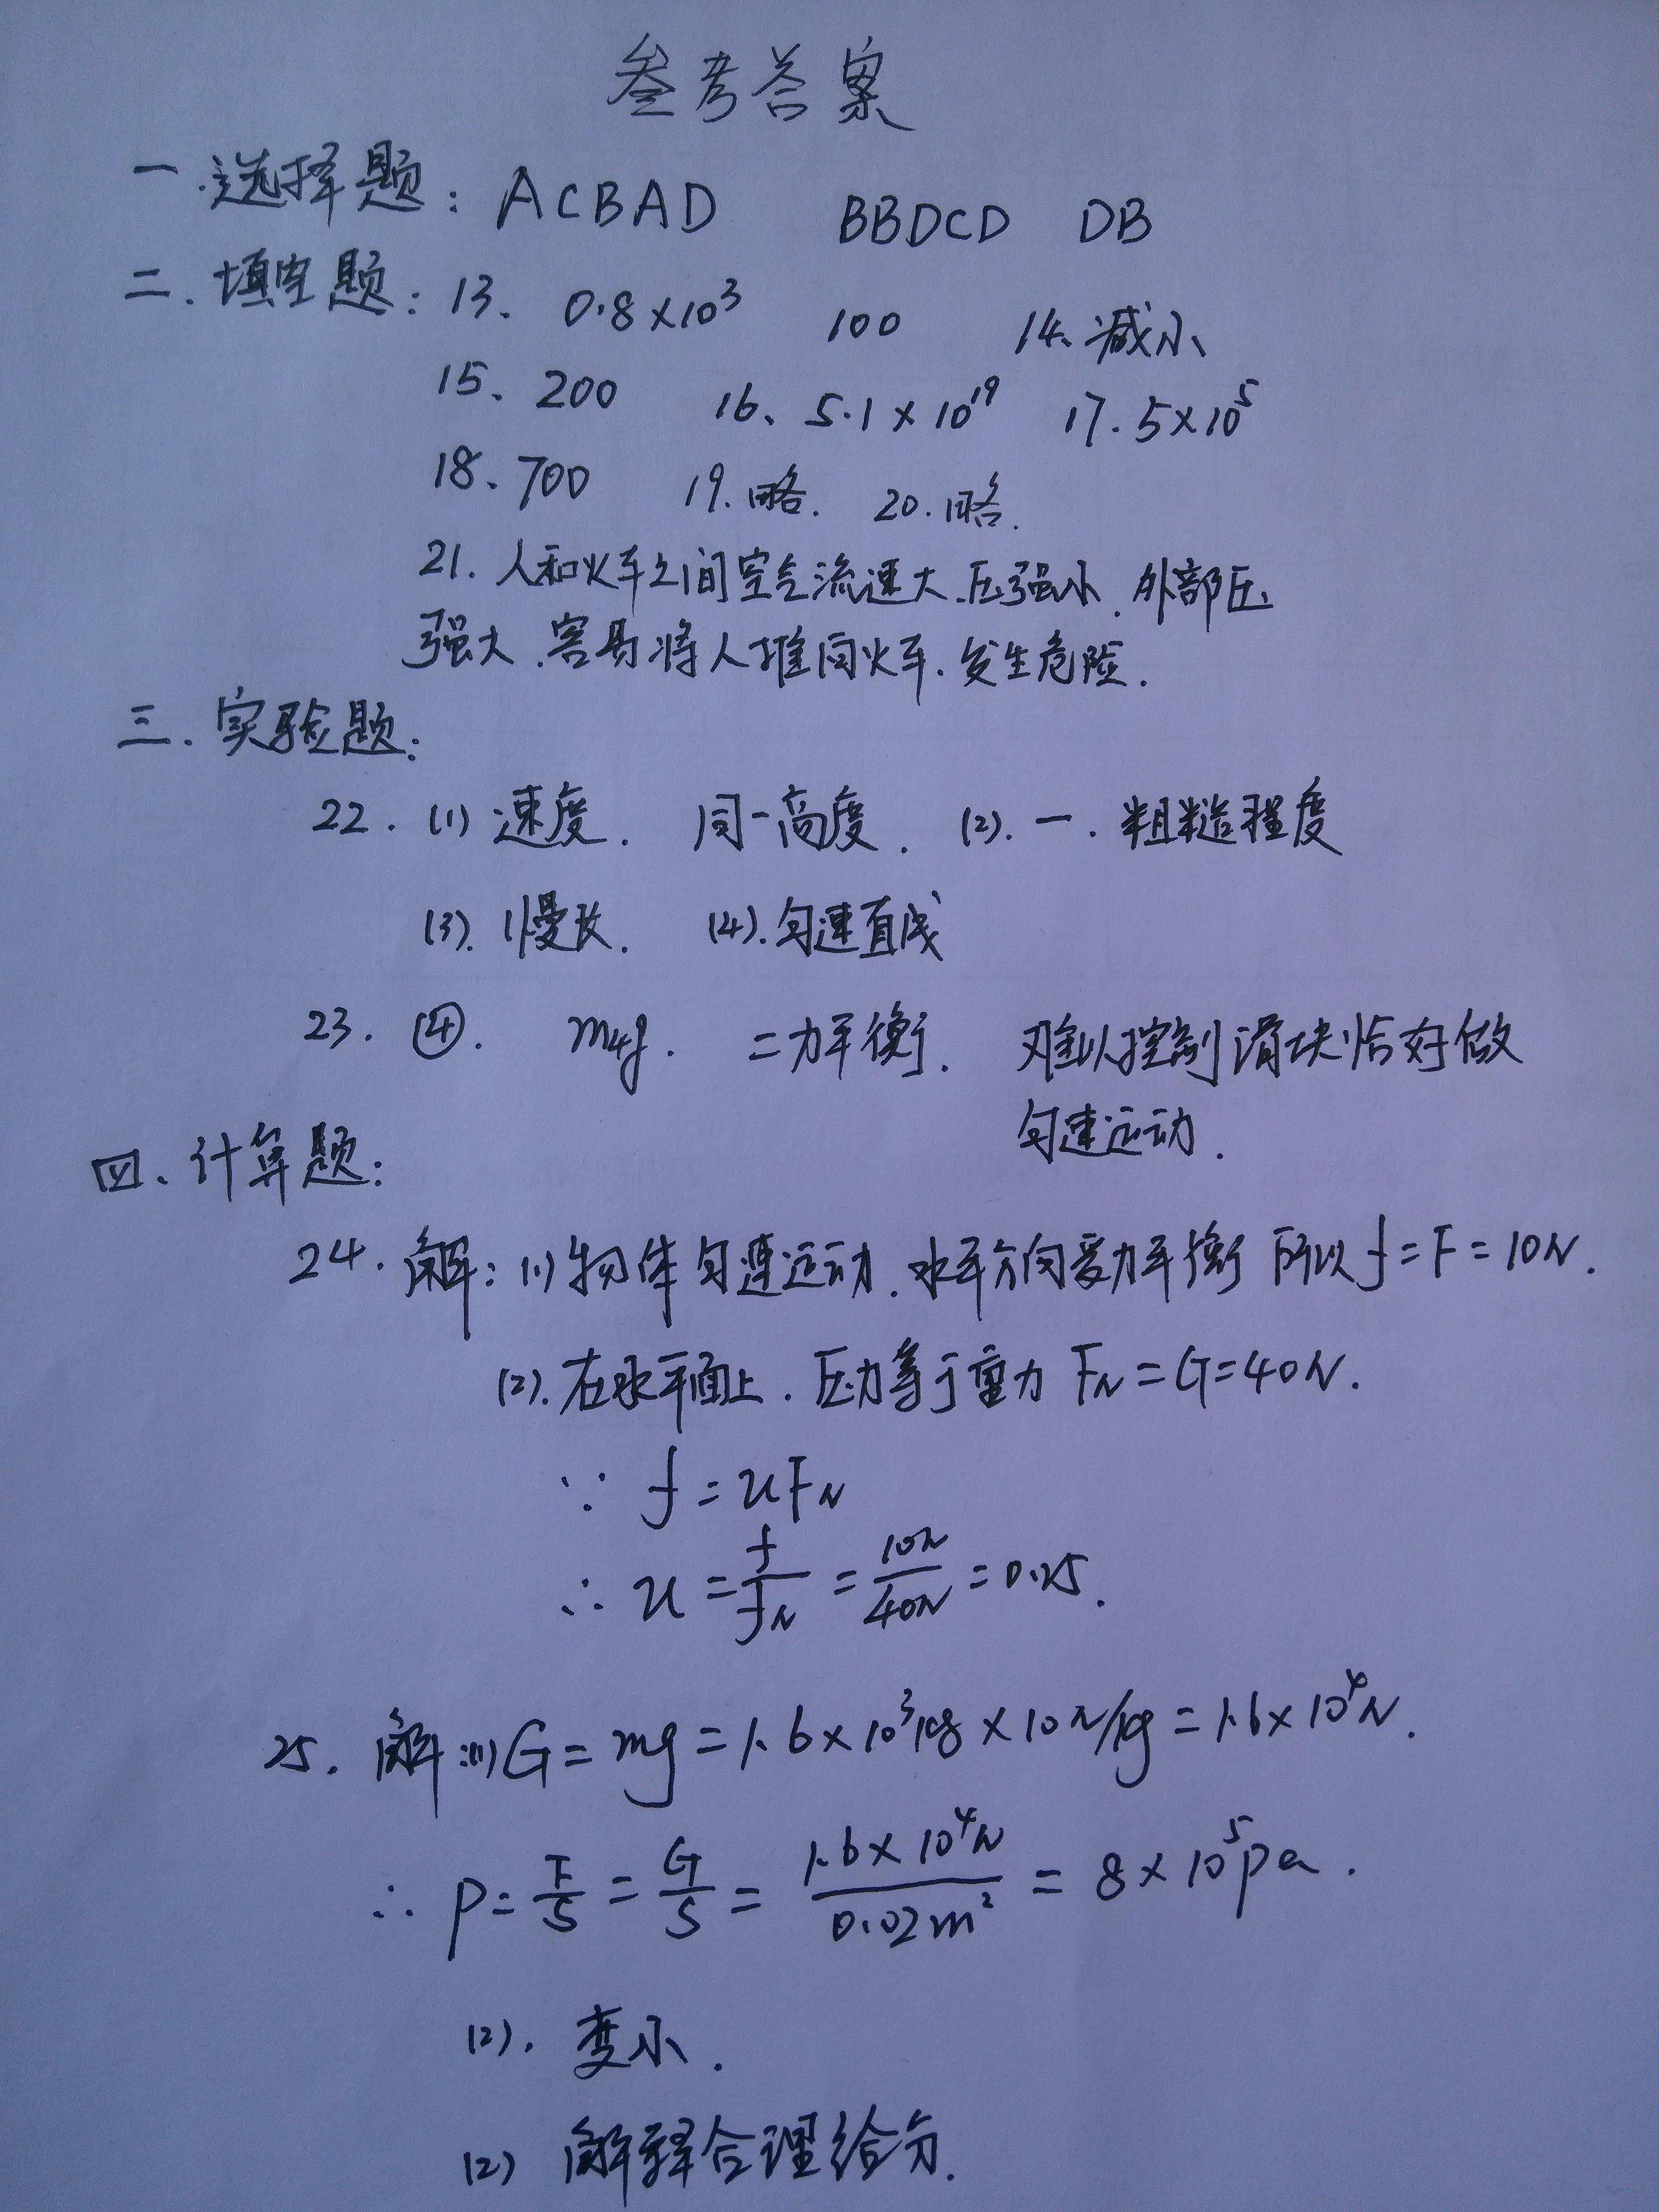 参考答案
一.选择题: ACBAD BBDCD DB
二.填空题: 13、0.8×10³ 100 14、减小
15、200 16、5.1×10¹⁹ 17.5×10⁵
18、700 19.略. 20.略.
21.人和火车之间空气流速大.压强小.外部压
强大.容易将人推向火车.发生危险.
三.实验题:
22.(1)速度. 同一高度. (2).一.粗糙程度
(3).慢长. (4).匀速直线
23.④. m₄g. 二力平衡. 难以控制滑块恰好做
匀速运动.
四、计算题:
24.解:(1)物体匀速运动.水平方向受力平衡 所以f=F=10N.
(2).在水平面上.压力等于重力 FN=G=40N.
∵ f=uFN
∴ u=f/fN=10N/40N=0.25.
25.解:(1)G=mg=1.6×10³kg×10N/kg=1.6×10⁴N.
∴ P=F/S=G/S=1.6×10⁴N/0.02m²=8×10⁵pa.
(2).变小.
(2)解释合理给分.